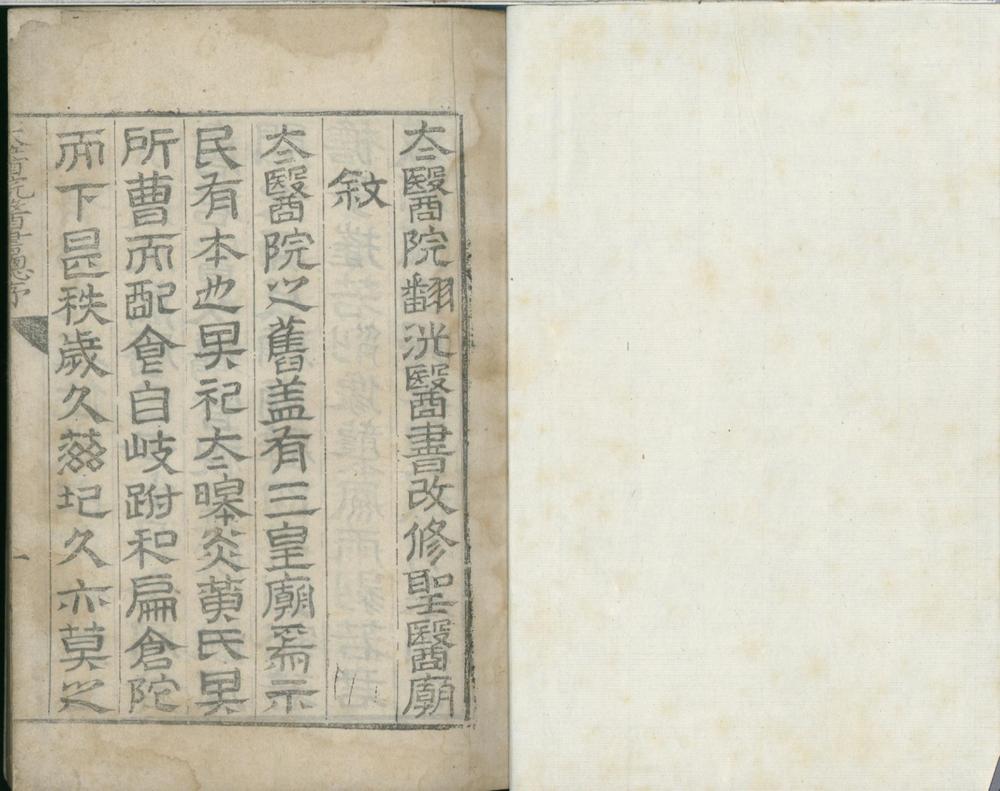 太醫院翻洗醫書改修聖醫廟
敘
太醫院之舊蓋有三皇廟焉示
民有本也其祀太皥炎黃氏其
所曹而配食自岐跗和扁倉陀
而下甚秩歲久茲圮久亦莫之
太醫院醫書總序
一